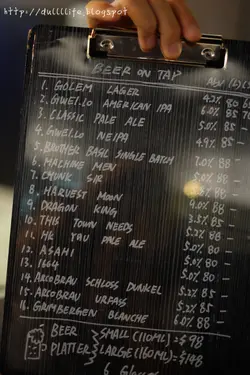 http://dullllife.blogspot.
BEER ON TAP
1. GOLEM LAGER 4.5%
2. GWEI.LO AMERICAN IPA 6.0% 70
3. CLASSIC PALE ALE 5.0% 85
4. GWEI.LO NEIPA 4.9% 85 -
5. BROTHER BASIL SINGLE BATCH
6. MACHINE MEN 7.0% 88 -
7. CHUNK SIR 5.0% 88 -
8. HARVEST MOON
9. DRAGON KING 9.0% 88 -
10. THIS TOWN NEEDS 3.5% 85 -
11. HK YAU PALE ALE 5.2% 85 -
12. ASAHI 5.0% 80 -
13. 1664 5.0% 80 -
14. ARCOBRAU SCHLOSS DUNKEL 5.2% 85 -
15. ARCOBRAU URFASS 5.2% 85 -
16. GRIMBERGEN BLANCHE 6.0% 88 -
BEER SMALL (110ML) = $98
PLATTER LARGE (160ML) = $148